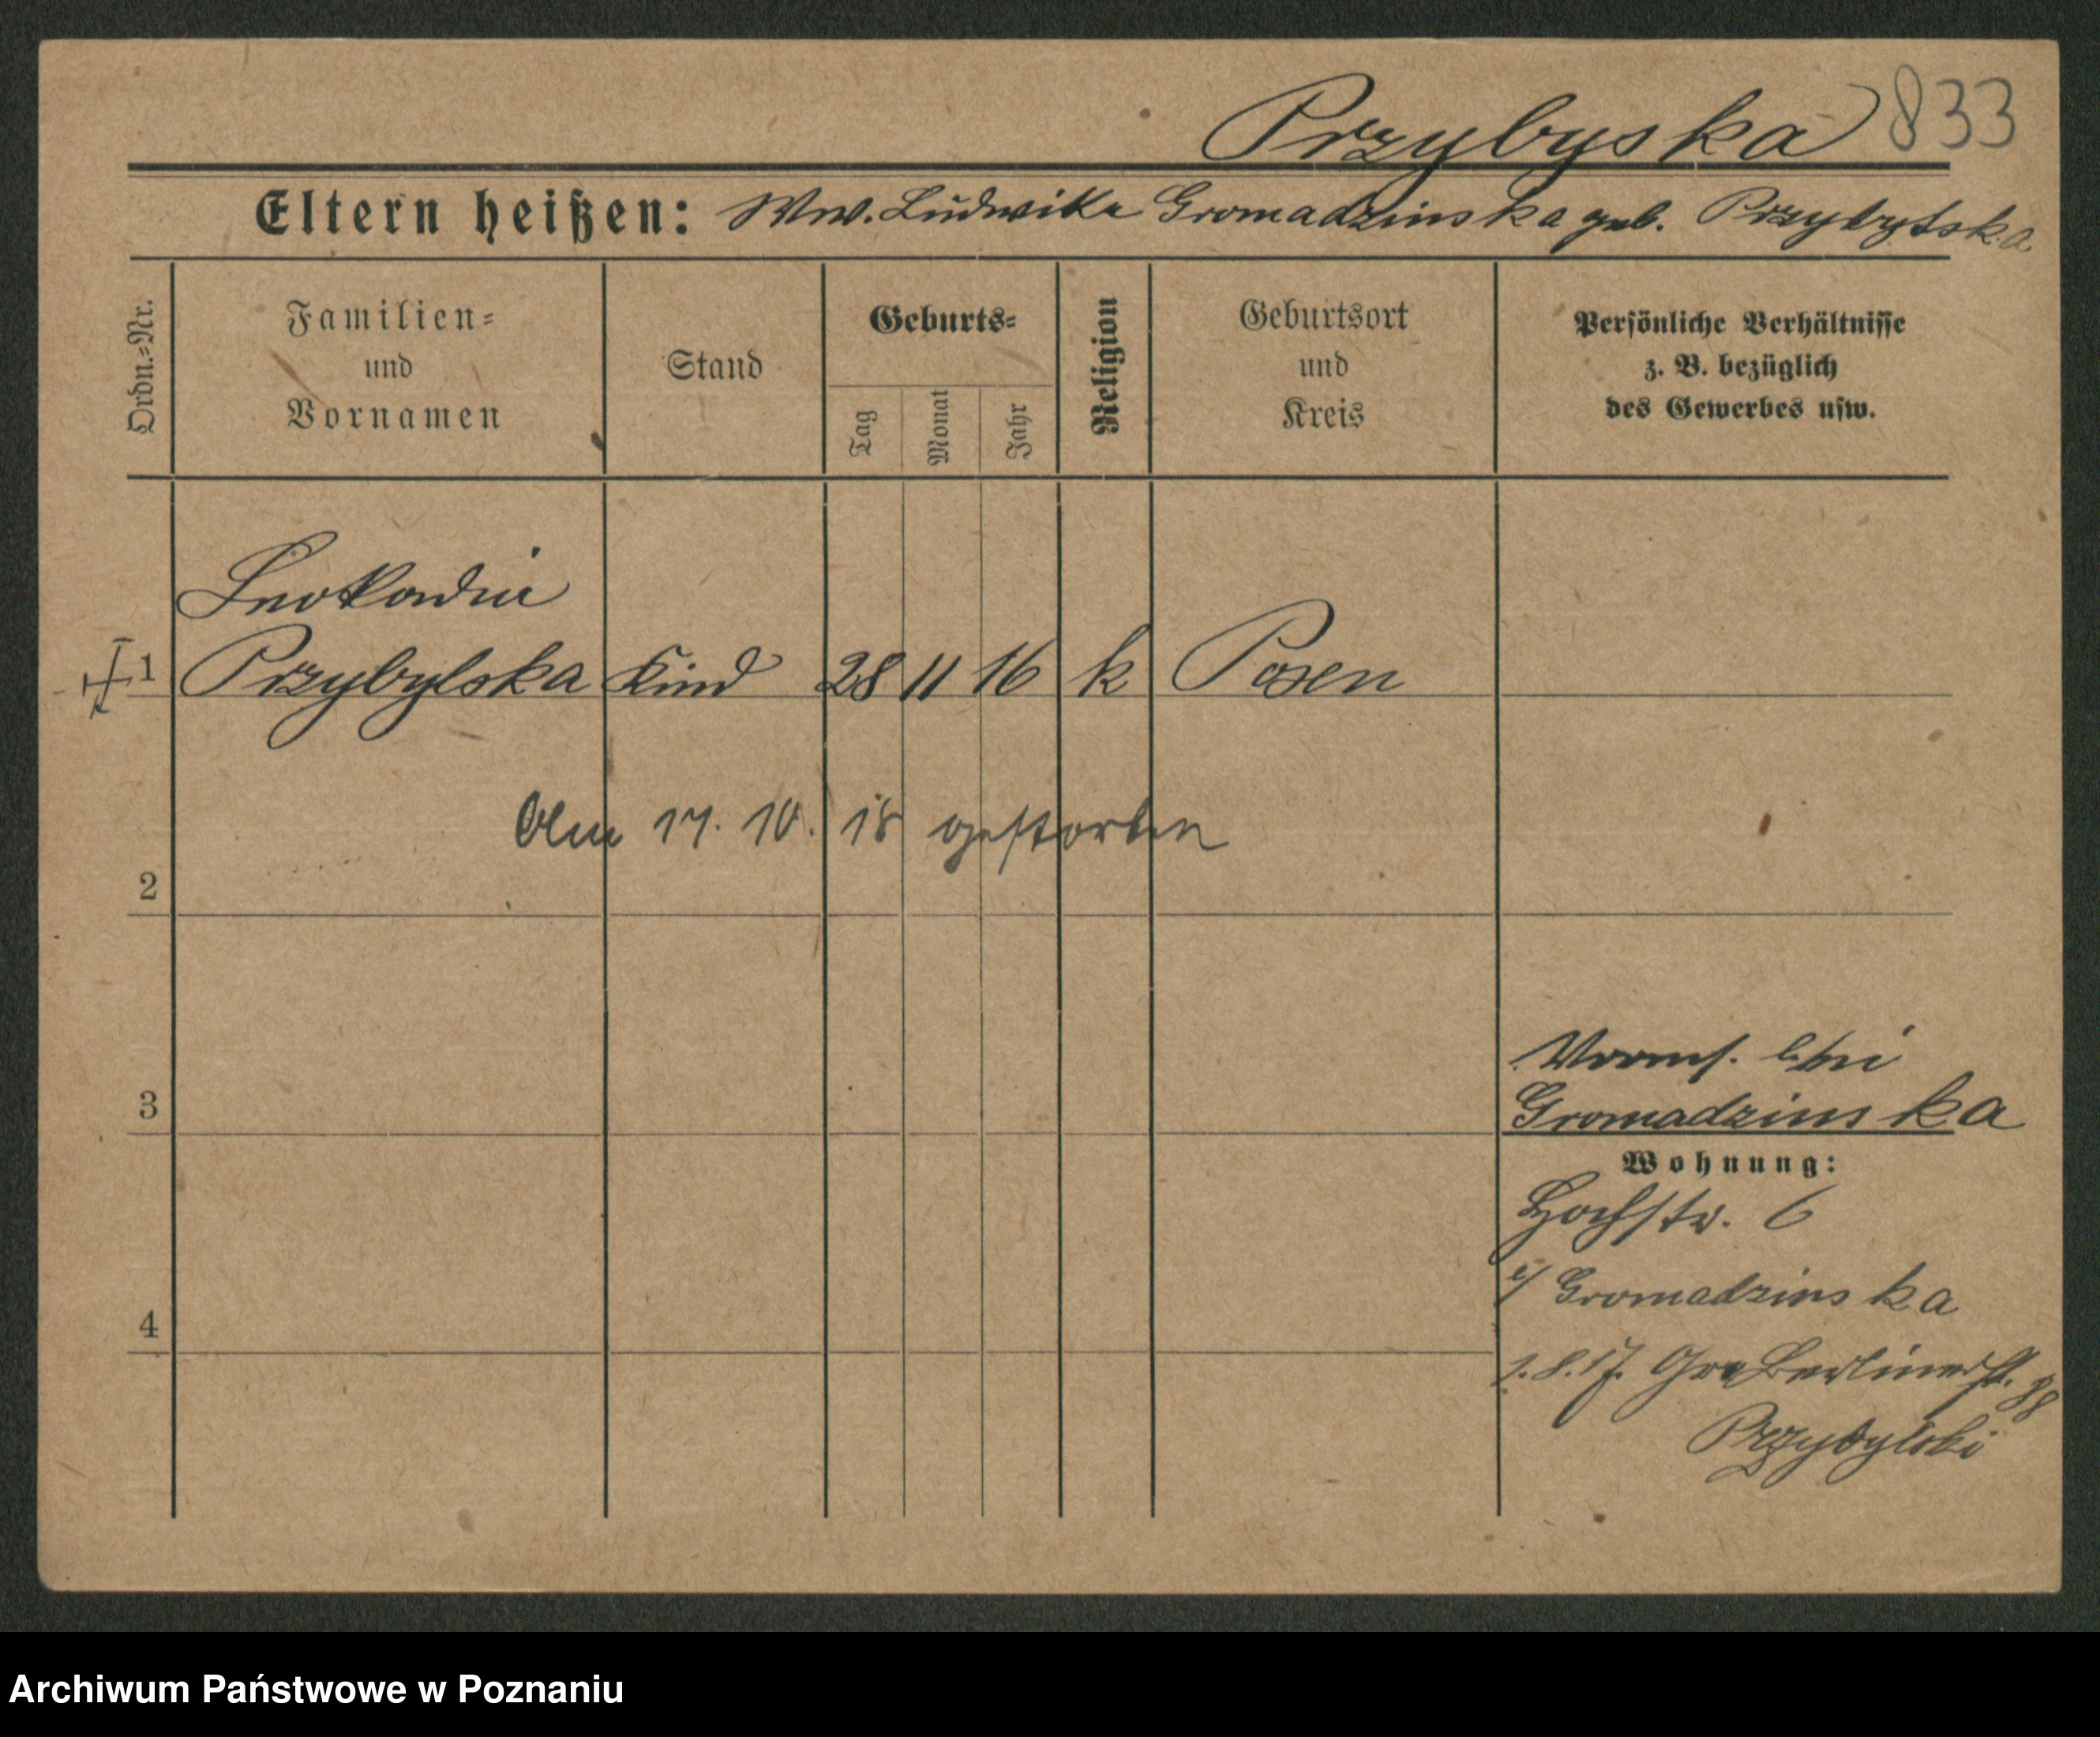 Przybyska 833
Eltern heißen: Ww. Ludwika Gromadzinska geb. Przybylska
Ordn.=Nr.
Familien=
und
Vornamen
Stand
Geburts=
Tag
Monat
Jahr
Religion
Geburtsort
und
Kreis
Persönliche Verhältnisse
z. B. bezüglich
des Gewerbes usw.
Leokadia
1 Przybylska Kind 28 11 16 k Posen
Am 17. 10. 18 gestorben
2
3
bei
Gromadzinska
Wohnung:
Hochstr. 6
b/ Gromadzinska
4
1.8.17. Gr. Berlinerst.
Przybylski
Archiwum Państwowe w Poznaniu